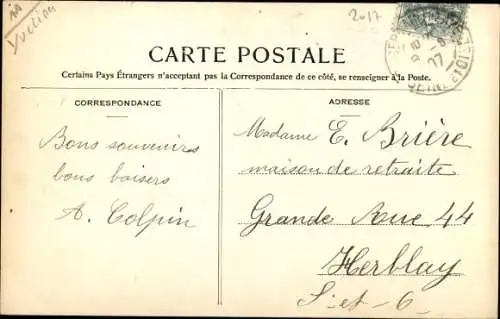 Yvelines
2017
CARTE POSTALE
Certains Pays Étrangers n'acceptant pas la Correspondance de ce côté, se renseigner à la Poste.
CORRESPONDANCE
ADRESSE
Bons souvenirs
bons baisers
A. Colpin
Madame E. Brière
maison de retraite
Grande Rue 44
Herblay
S.-et-O.
SEINE